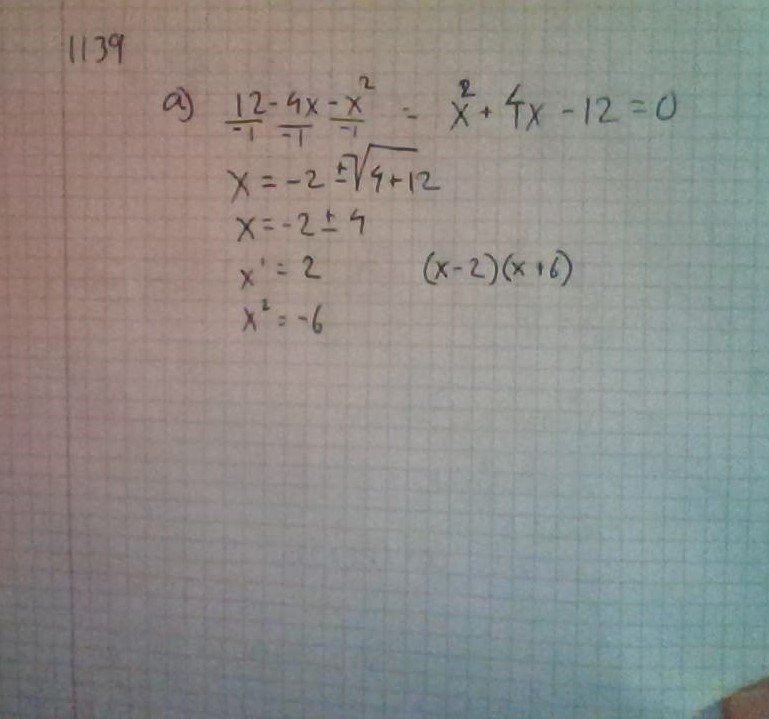 1139
a) 12/-1 - 4x/-1 - x²/-1 = x² + 4x - 12 = 0
x = -2 ± √4+12
x = -2 ± 4
x' = 2 (x-2)(x+6)
x² = -6